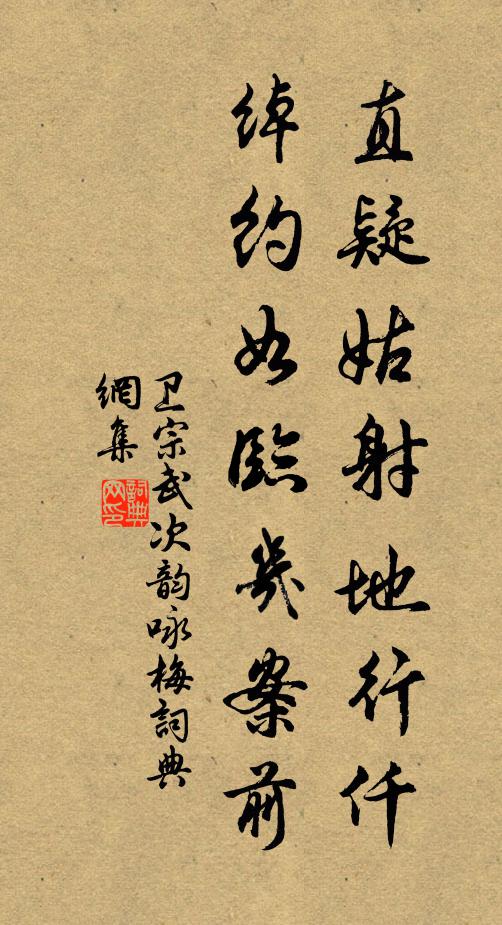 直疑姑射地行仟
绰约如临几案前
卫宗武次韵咏梅词典
網集
詞典
网印